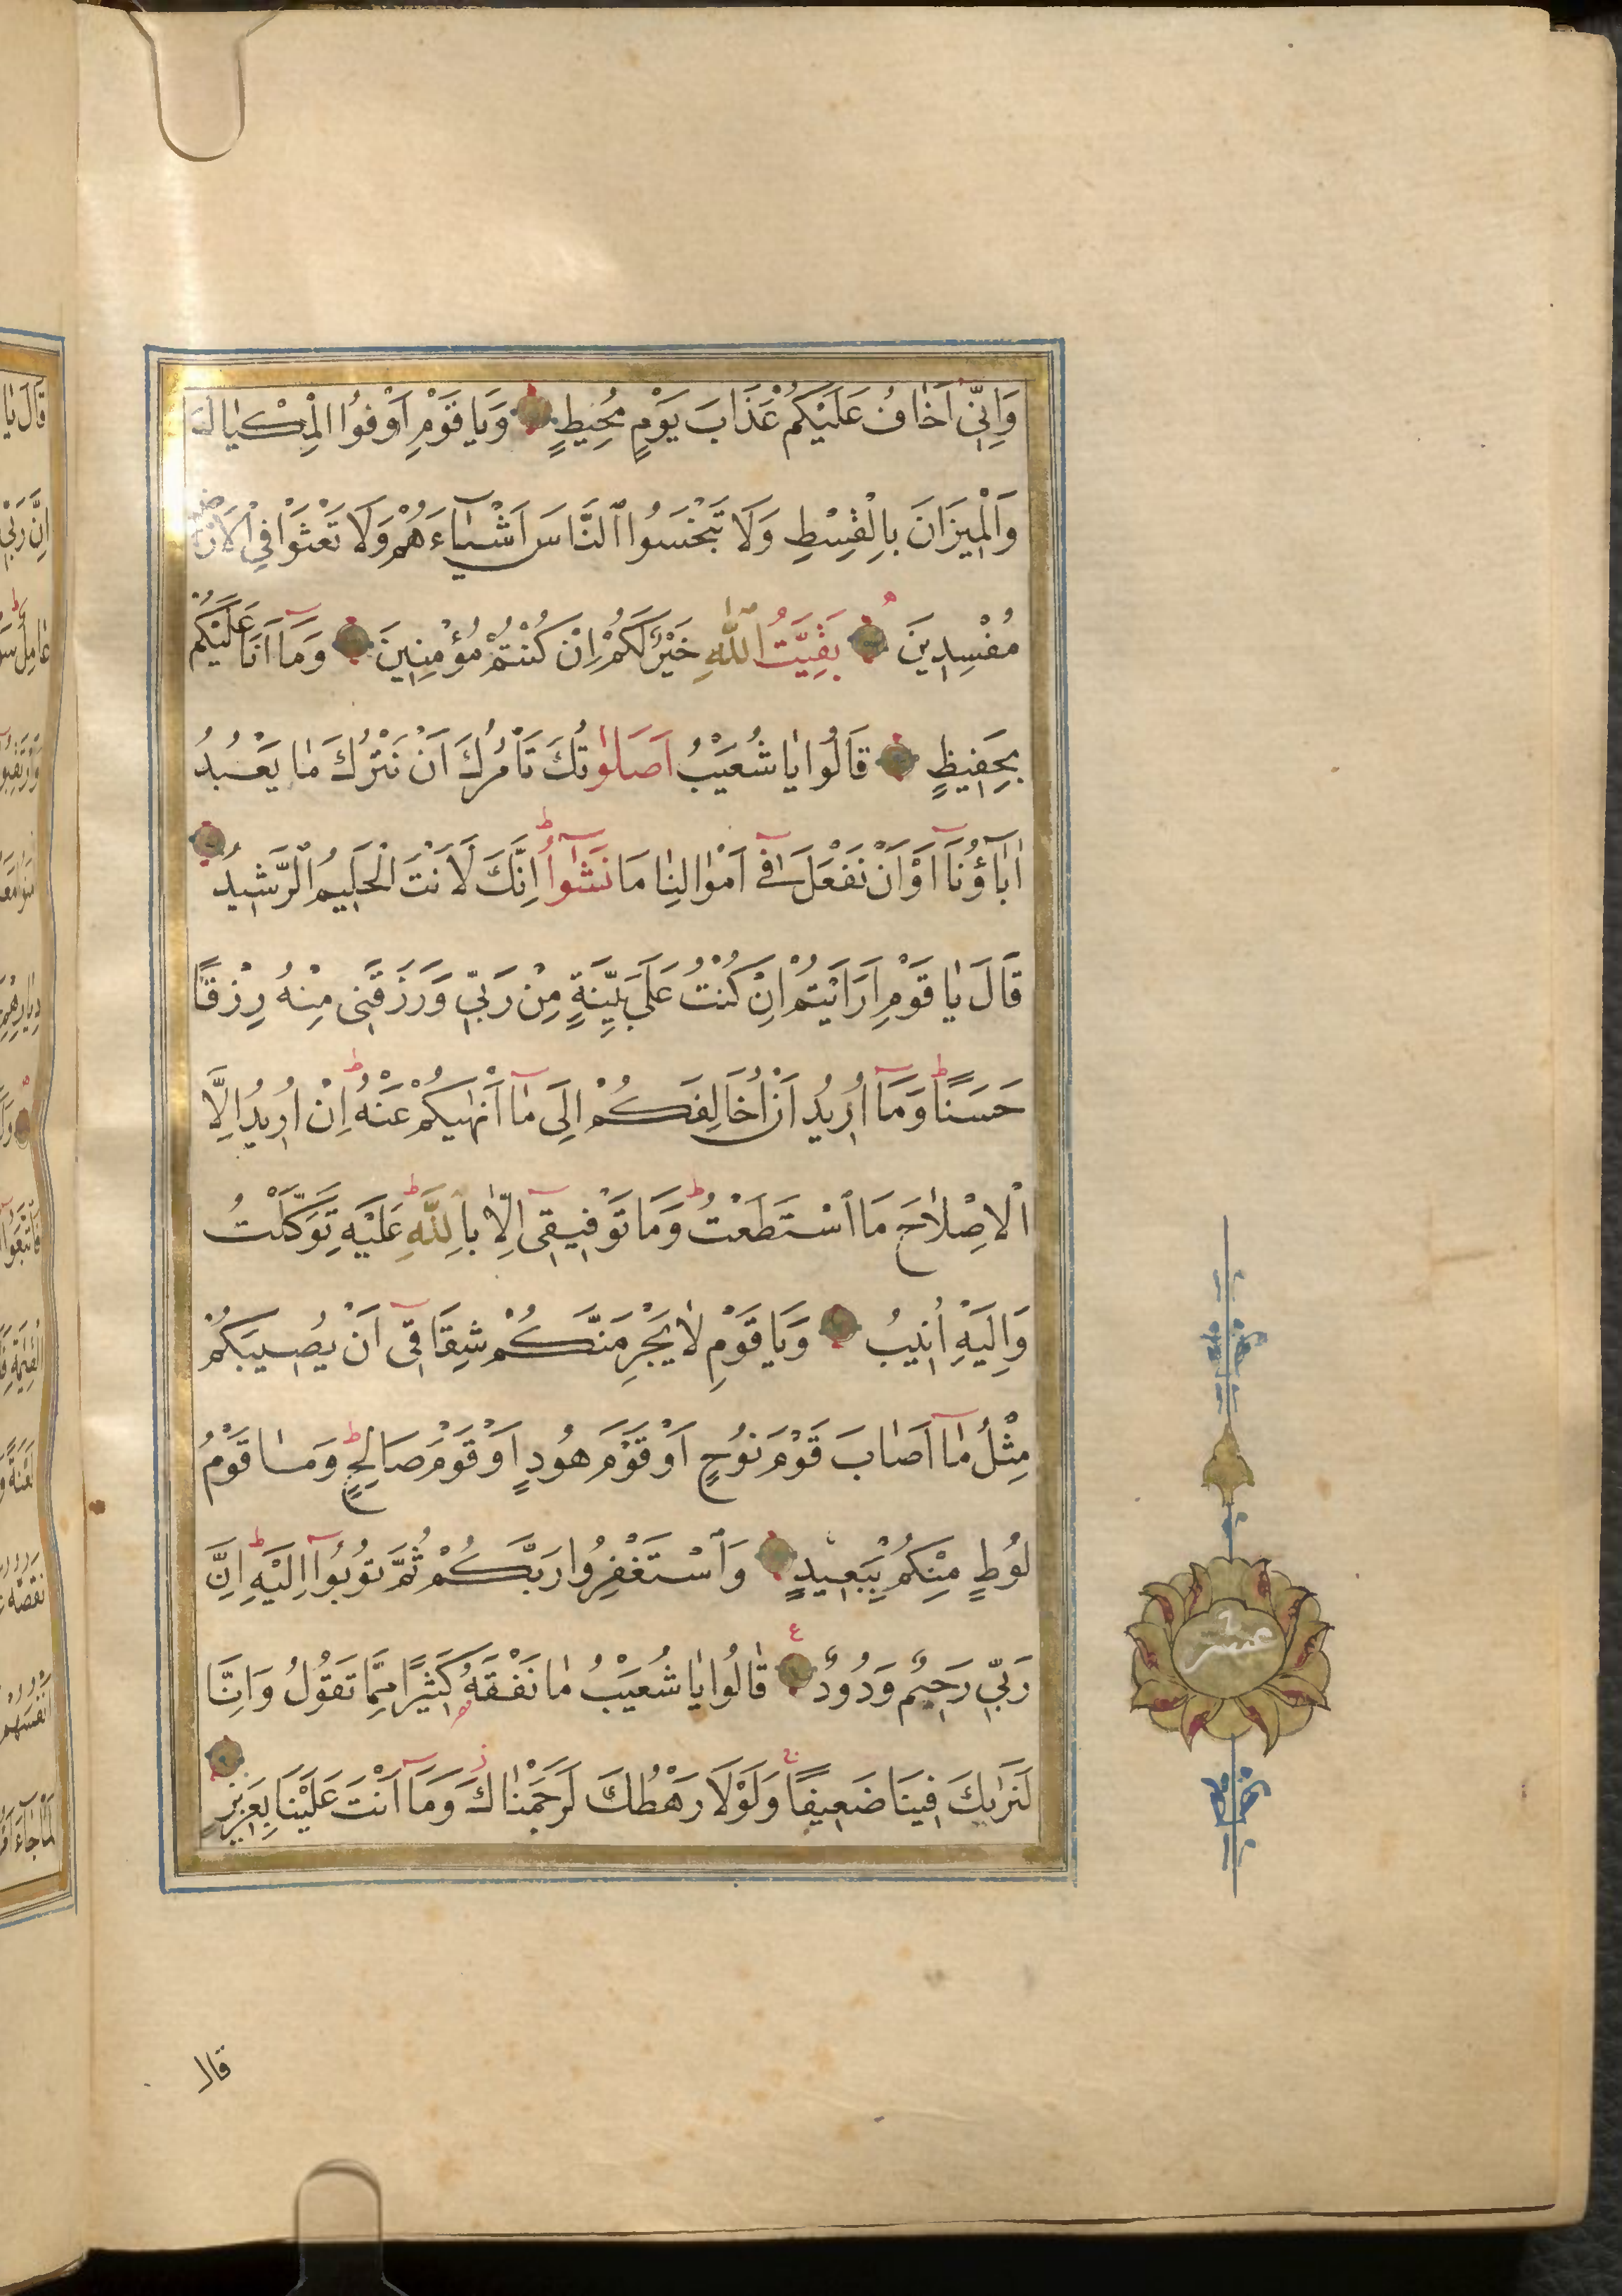 وَاِنّٖٓى اَخَافُ عَلَيْكُمْ عَذَابَ يَوْمٍ مُحٖيطٍ وَيَا قَوْمِ اَوْفُوا الْمِكْيَالَ
وَالْمٖيزَانَ بِالْقِسْطِ وَلَا تَبْخَسُوا النَّاسَ اَشْيَٓاءَهُمْ وَلَا تَعْثَوْا فِى الْاَرْضِ
مُفْسِدٖينَ بَقِيَّتُ اللّٰهِ خَيْرٌ لَكُمْ اِنْ كُنْتُمْ مُؤْمِنٖينَ وَمَٓا اَنَا عَلَيْكُمْ
بِحَفٖيظٍ قَالُوا يَا شُعَيْبُ اَصَلٰوتُكَ تَاْمُرُكَ اَنْ نَتْرُكَ مَا يَعْبُدُ
اٰبَٓاؤُنَٓا اَوْ اَنْ نَفْعَلَ فٖٓى اَمْوَالِنَا مَا نَشٰٓوأُ اِنَّكَ لَاَنْتَ الْحَلٖيمُ الرَّشٖيدُ
قَالَ يَا قَوْمِ اَرَاَيْتُمْ اِنْ كُنْتُ عَلٰى بَيِّنَةٍ مِنْ رَبّٖى وَرَزَقَنٖى مِنْهُ رِزْقًا
حَسَنًا وَمَٓا اُرٖيدُ اَنْ اُخَالِفَكُمْ اِلٰى مَٓا اَنْهٰيكُمْ عَنْهُ اِنْ اُرٖيدُ اِلَّا
الْاِصْلَاحَ مَا اسْتَطَعْتُ وَمَا تَوْفٖيقٖٓى اِلَّا بِاللّٰهِ عَلَيْهِ تَوَكَّلْتُ
وَاِلَيْهِ اُنٖيبُ وَيَا قَوْمِ لَا يَجْرِمَنَّكُمْ شِقَاقٖٓى اَنْ يُصٖيبَكُمْ
مِثْلُ مَٓا اَصَابَ قَوْمَ نُوحٍ اَوْ قَوْمَ هُودٍ اَوْ قَوْمَ صَالِحٍ وَمَا قَوْمُ
لُوطٍ مِنْكُمْ بِبَعٖيدٍ وَاسْتَغْفِرُوا رَبَّكُمْ ثُمَّ تُوبُٓوا اِلَيْهِ اِنَّ
رَبّٖى رَحٖيمٌ وَدُودٌ قَالُوا يَا شُعَيْبُ مَا نَفْقَهُ كَثٖيرًا مِمَّا تَقُولُ وَاِنَّا
لَنَرٰيكَ فٖينَا ضَعٖيفًا وَلَوْلَا رَهْطُكَ لَرَجَمْنَاكَ وَمَٓا اَنْتَ عَلَيْنَا بِعَزٖيزٍ
عشر
قال